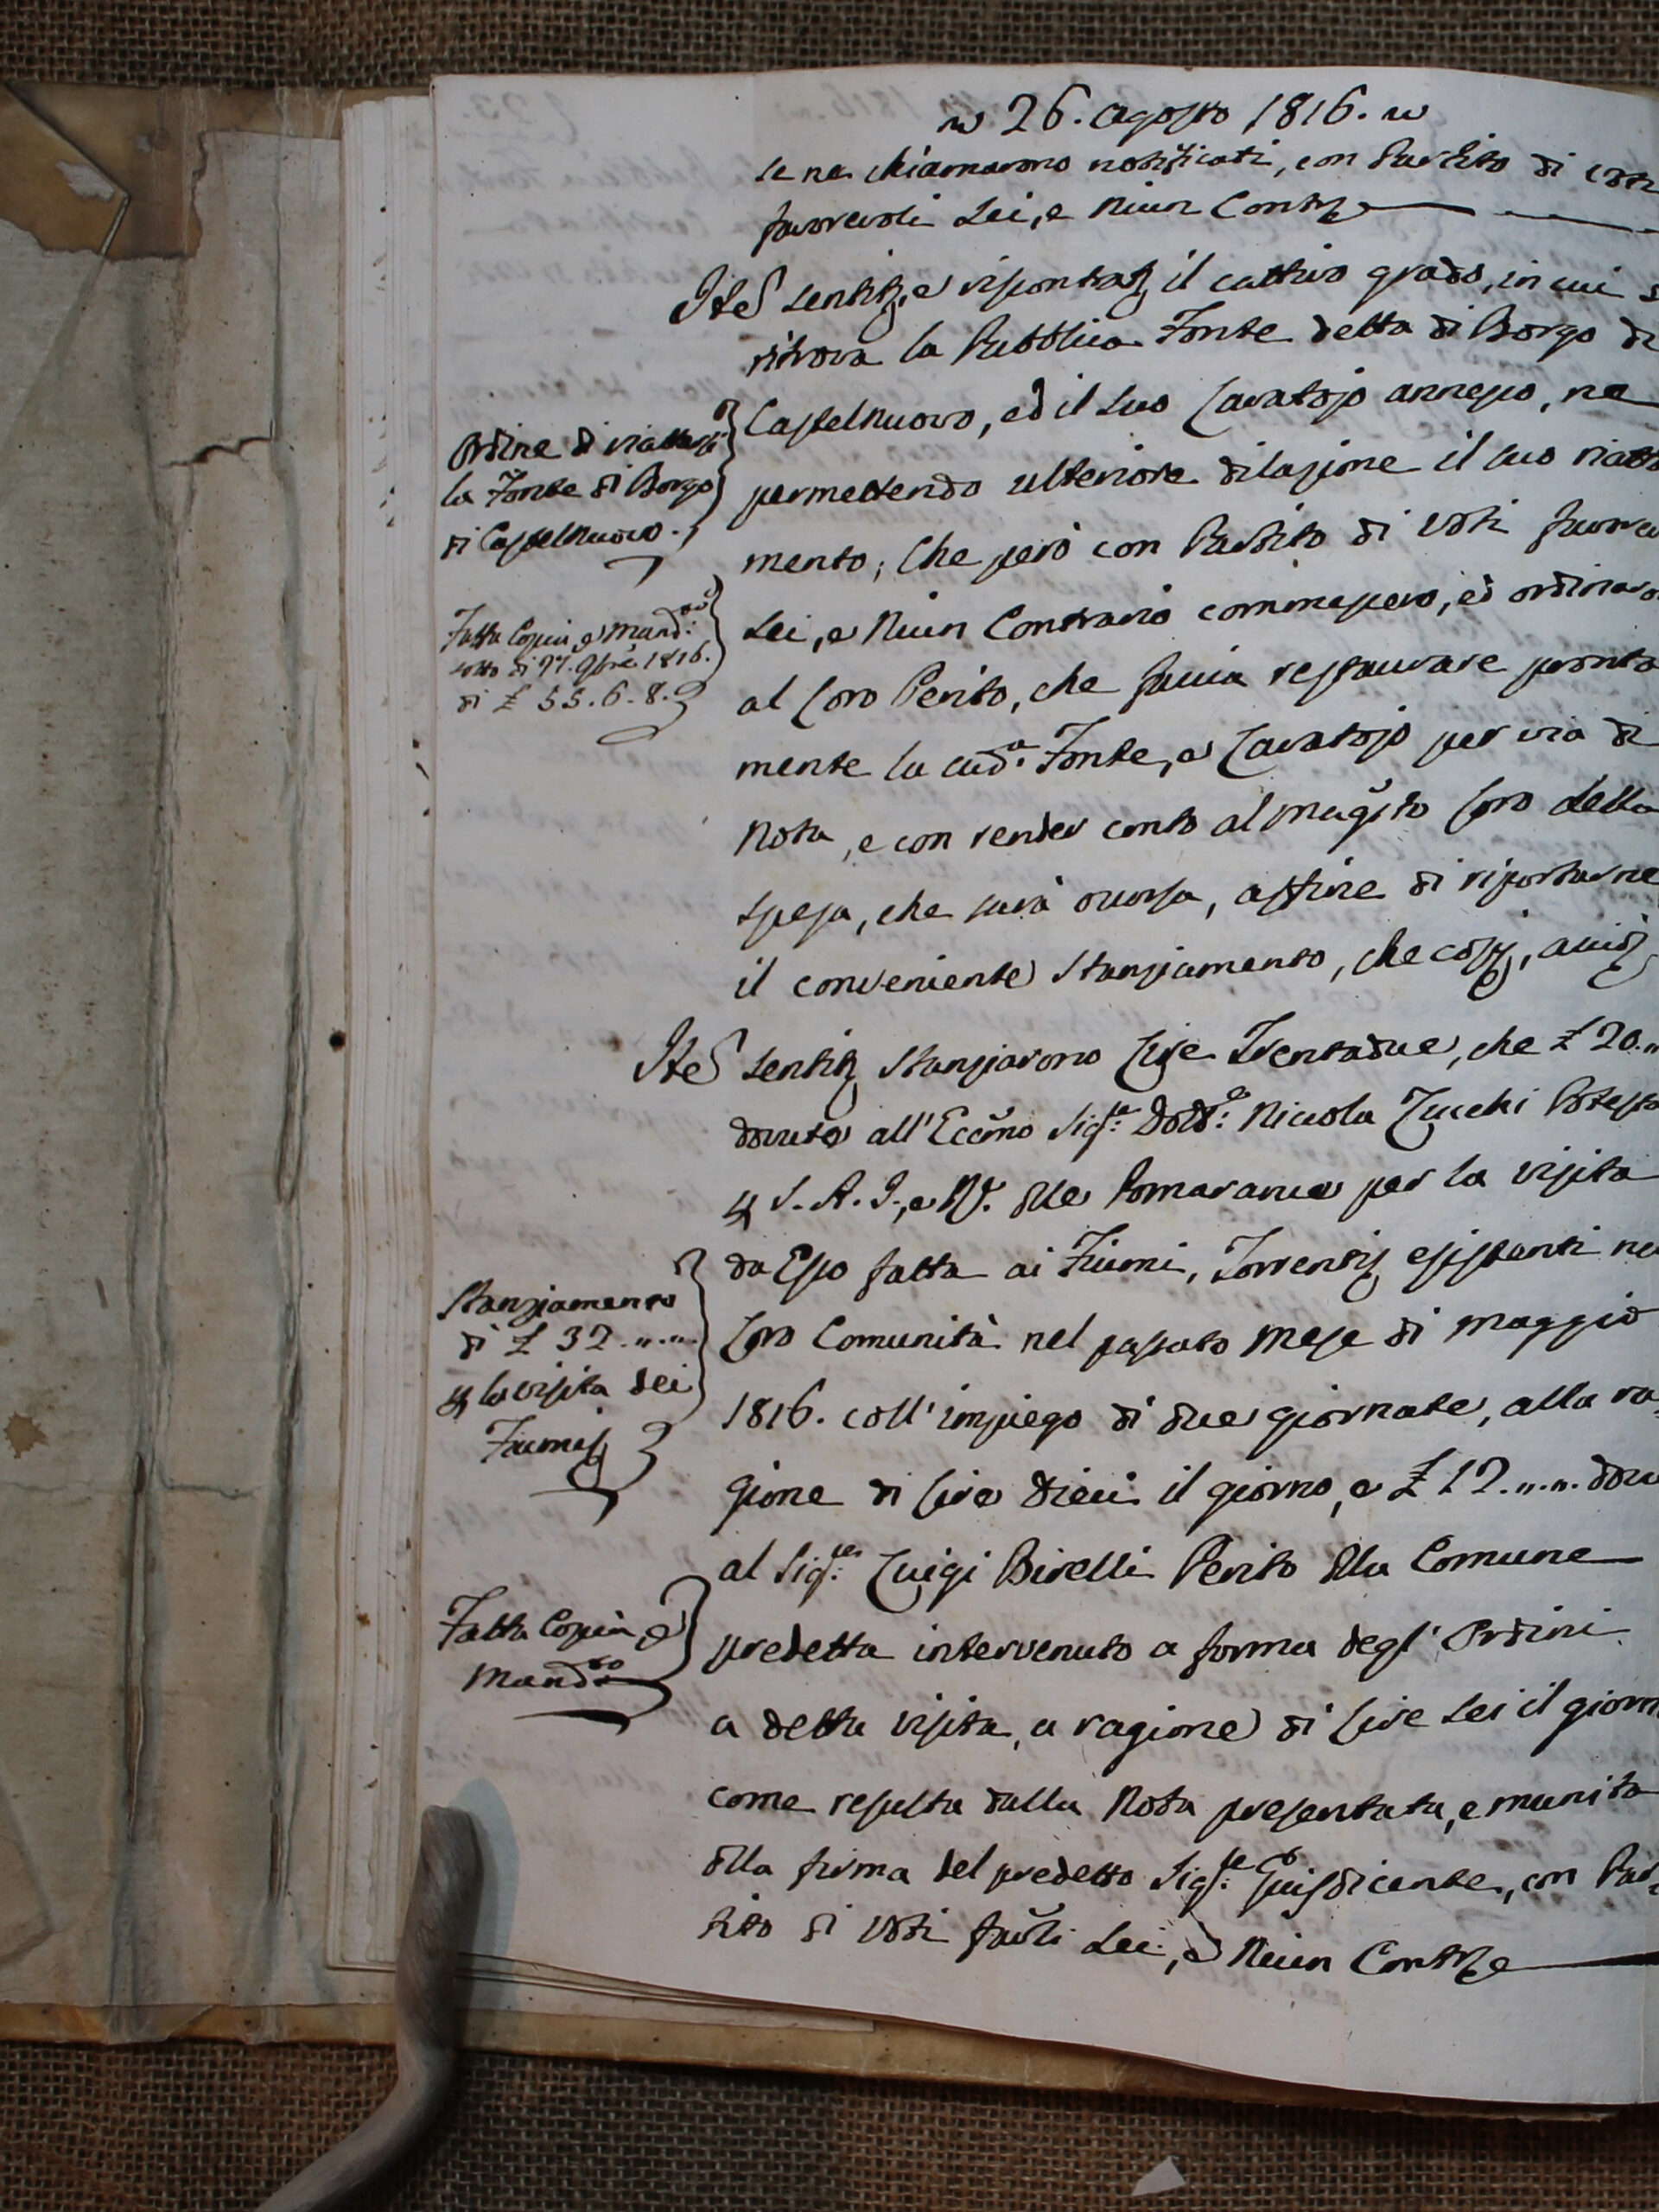 26. Agosto 1816.
se ne chiamarono notificati, con Partito di voti
favorevoli Sei, e Niun Contr.e
Ite sentito, e riscontrato il cattivo grado, in cui s
ritrova la Pubblica Fonte detta di Borgo di
Castelnuovo, ed il suo Lavatojo annesso, ne
permettendo ulteriore dilazione il suo riatta
mento; Che però con Partito di Voti favorev
Sei, e Niun Contrario commessero, ed ordinaro
al Loro Perito, che faccia restaurare pronta
mente la sud.a Fonte, e Lavatojo per via di
Nota, e con render conto al Mag.to Loro della
spesa, che sarà occorsa, affine di riportarne
il conveniente Stanziamento, che così,
Ordine di riattarsi
la Fonte di Borgo
di Castelnuovo.
Fatta Copia, e Mand.to
sotto di 27. 9bre 1816.
di £ 55.6.8.
Ite sentito Stanziarono Lire Trentadue, che £ 20..
dovute all'Eccmo Sig.re Dott.e Nicola Zucchi Potestà
p S. A. I., e R. delle Pomarance per la visita
da Esso fatta ai Fiumi, Torrenti esistenti ne
Loro Comunità nel passato Mese di Maggio
1816. coll'impiego di due giornate, alla ra,
gione di Lire Dieci il giorno, e £ 12..... dov
al Sig.re Luigi Birelli Perito della Comune
predetta intervenuto a forma degl'Ordini
a detta visita, a ragione di Lire Sei il giorn
come resulta dalla Nota presentata, e munita
dalla firma del predetto Sig.re Giusdicente, con Par,
tito di Voti favli Sei, e Niun Contr.e
Stanziamento
di £ 32.....
p la visita dei
Fiumi
Fatta Copia, e
Mand.to